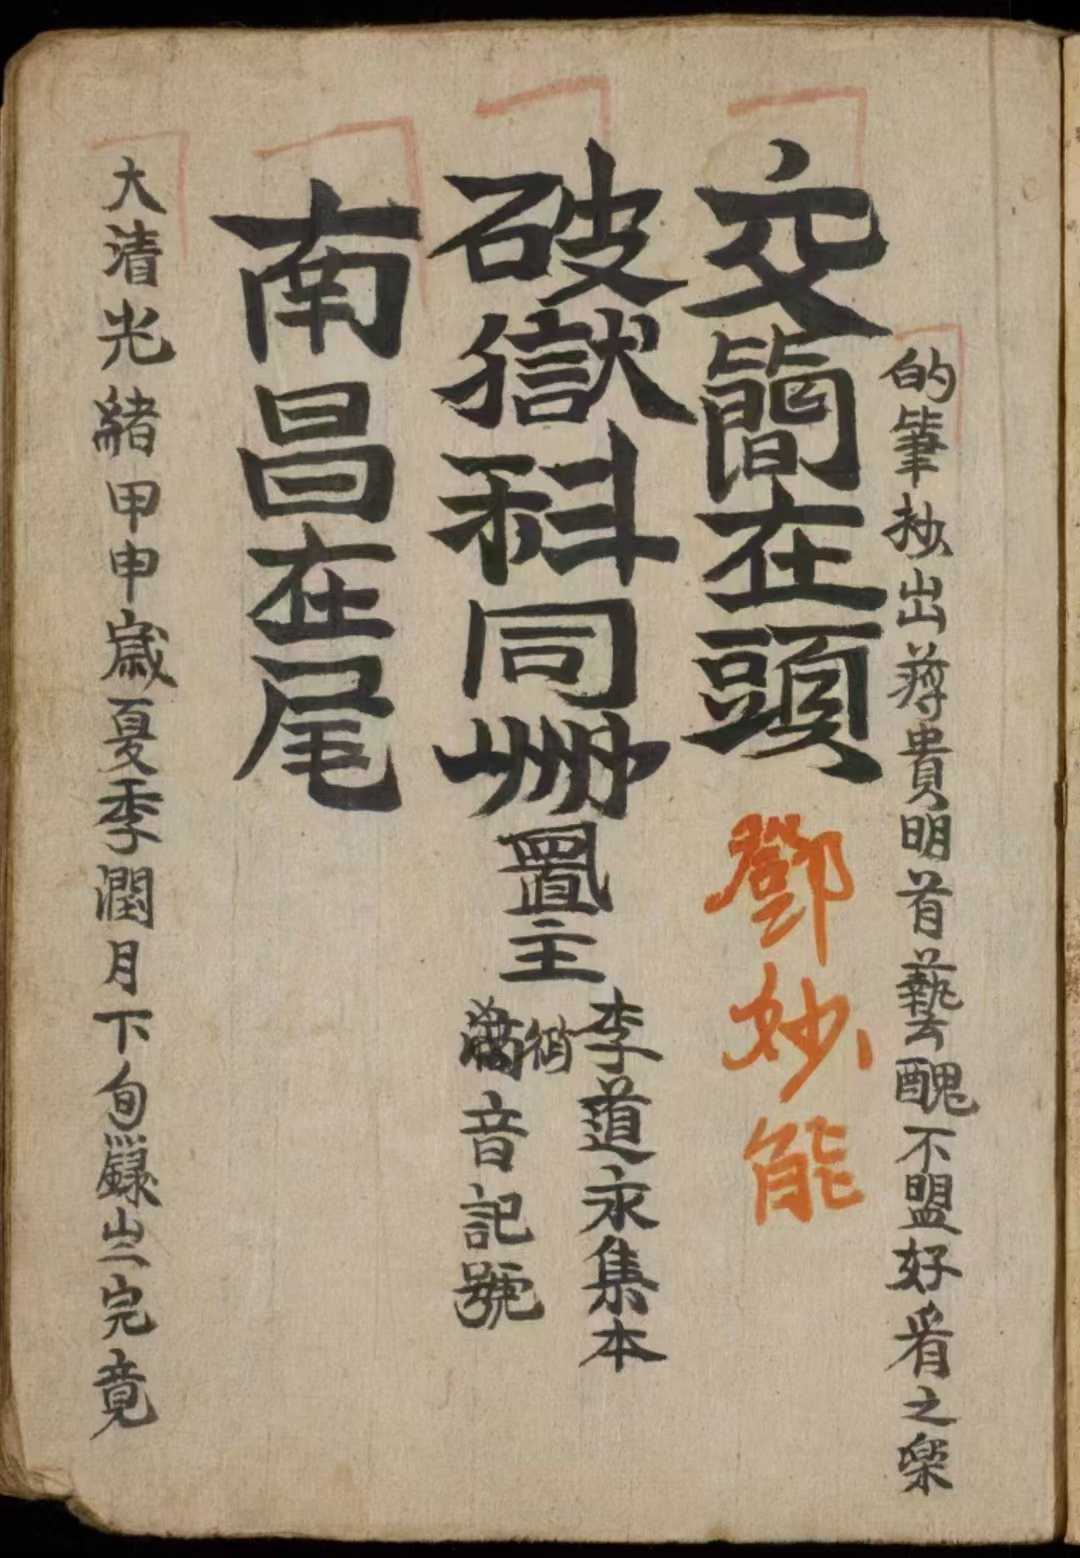 的筆抄出蕁貴明首藝醜不盟好看之樂
交簡在頭
鄧妙能
破獄科同卌
置主
李道永集本
音記號
南昌在尾
大清光緒甲申歲夏季潤月下旬錄完竟